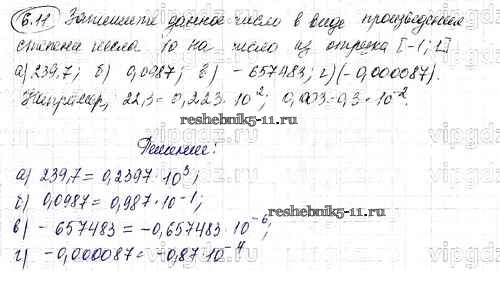 6.11 Запишите данное число в виде произведения
степени числа 10 на число из отрезка [-1; 1]
а) 239,7; б) 0,0987; в) - 657483; г) (-0,000087).
Например, 22,3 = 0,223 · 10²; 0,003 = 0,3 · 10⁻².
reshebnik5-11.ru
Решение:
а) 239,7 = 0,2397 · 10³;
б) 0,0987 = 0,987 · 10⁻¹;
reshebnik5-11.ru
в) - 657483 = -0,657483 · 10⁻⁶;
г) -0,000087 = -0,87 · 10⁻⁴
vipgdz.ru